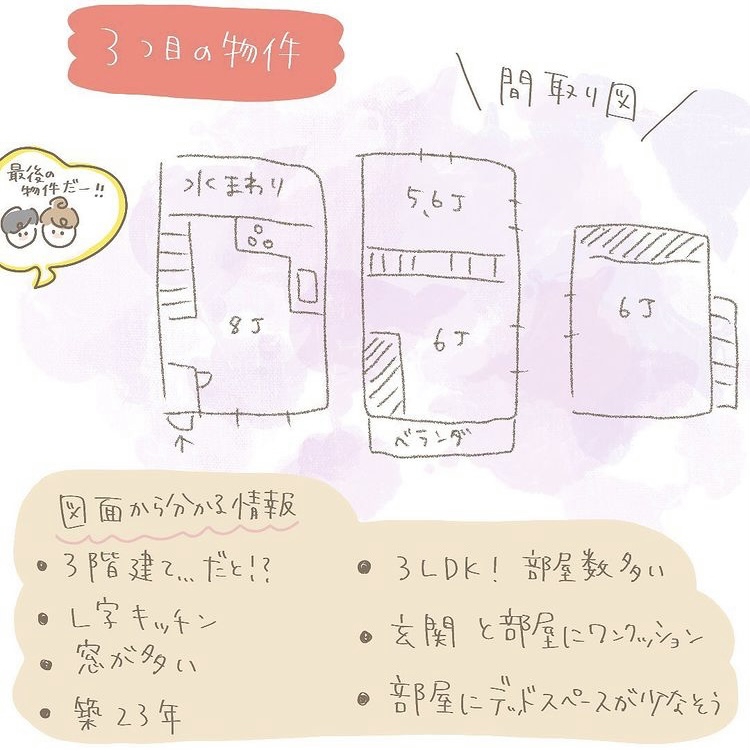 3つ目の物件
間取り図
最後の
物件だー!!
水まわり
8J
5,6J
6J
ベランダ
6J
図面から分かる情報
・3階建て...だと!?
・L字キッチン
・窓が多い
・築23年
・3LDK! 部屋数多い
・玄関と部屋にワンクッション
・部屋にデッドスペースが少なそう